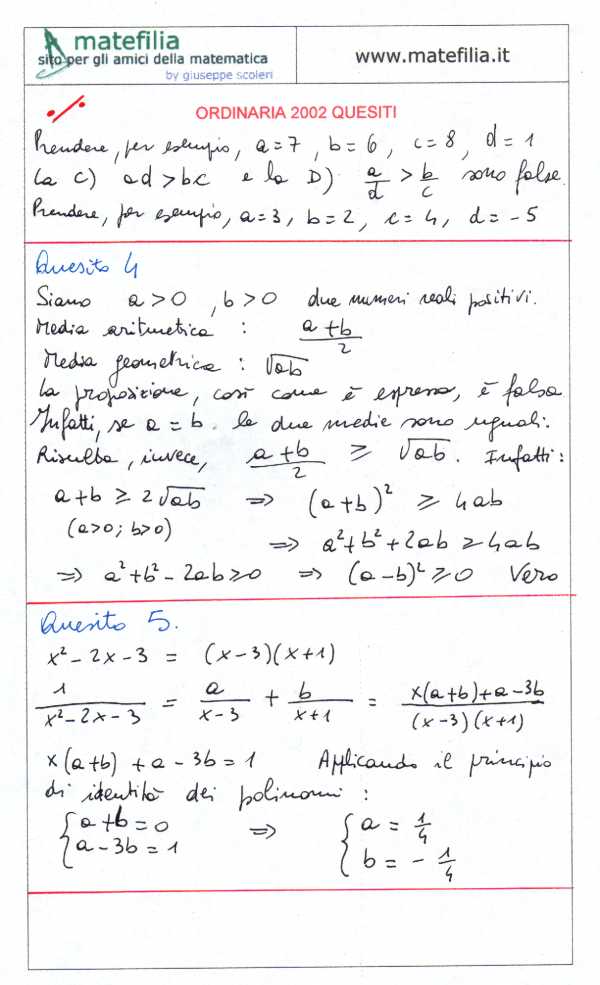 matefilia
sito per gli amici della matematica
by giuseppe scoleri
www.matefilia.it
ORDINARIA 2002 QUESITI
Prendere, per esempio, a=7, b=6, c=8, d=1
La C) ad>bc e la D) a/d > b/c sono false.
Prendere, per esempio, a=3, b=2, c=4, d=-5
Quesito 4
Siano a>0, b>0 due numeri reali positivi.
Media aritmetica : (a+b)/2
Media geometrica : √ab
La proposizione, così come è espressa, è falsa
Infatti, se a=b. le due medie sono uguali.
Risulta, invece, (a+b)/2 ≥ √ab. Infatti:
a+b ≥ 2√ab ⇒ (a+b)² ≥ 4ab
(a>0; b>0) ⇒ a²+b²+2ab ≥ 4ab
⇒ a²+b²-2ab≥0 ⇒ (a-b)²≥0 Vero
Quesito 5.
x²-2x-3 = (x-3)(x+1)
1/(x²-2x-3) = a/(x-3) + b/(x+1) = (x(a+b)+a-3b)/((x-3)(x+1))
x(a+b)+a-3b=1 Applicando il principio
di identità dei polinomi :
{a+b=0 ⇒ {a = 1/4
{a-3b=1 {b = -1/4